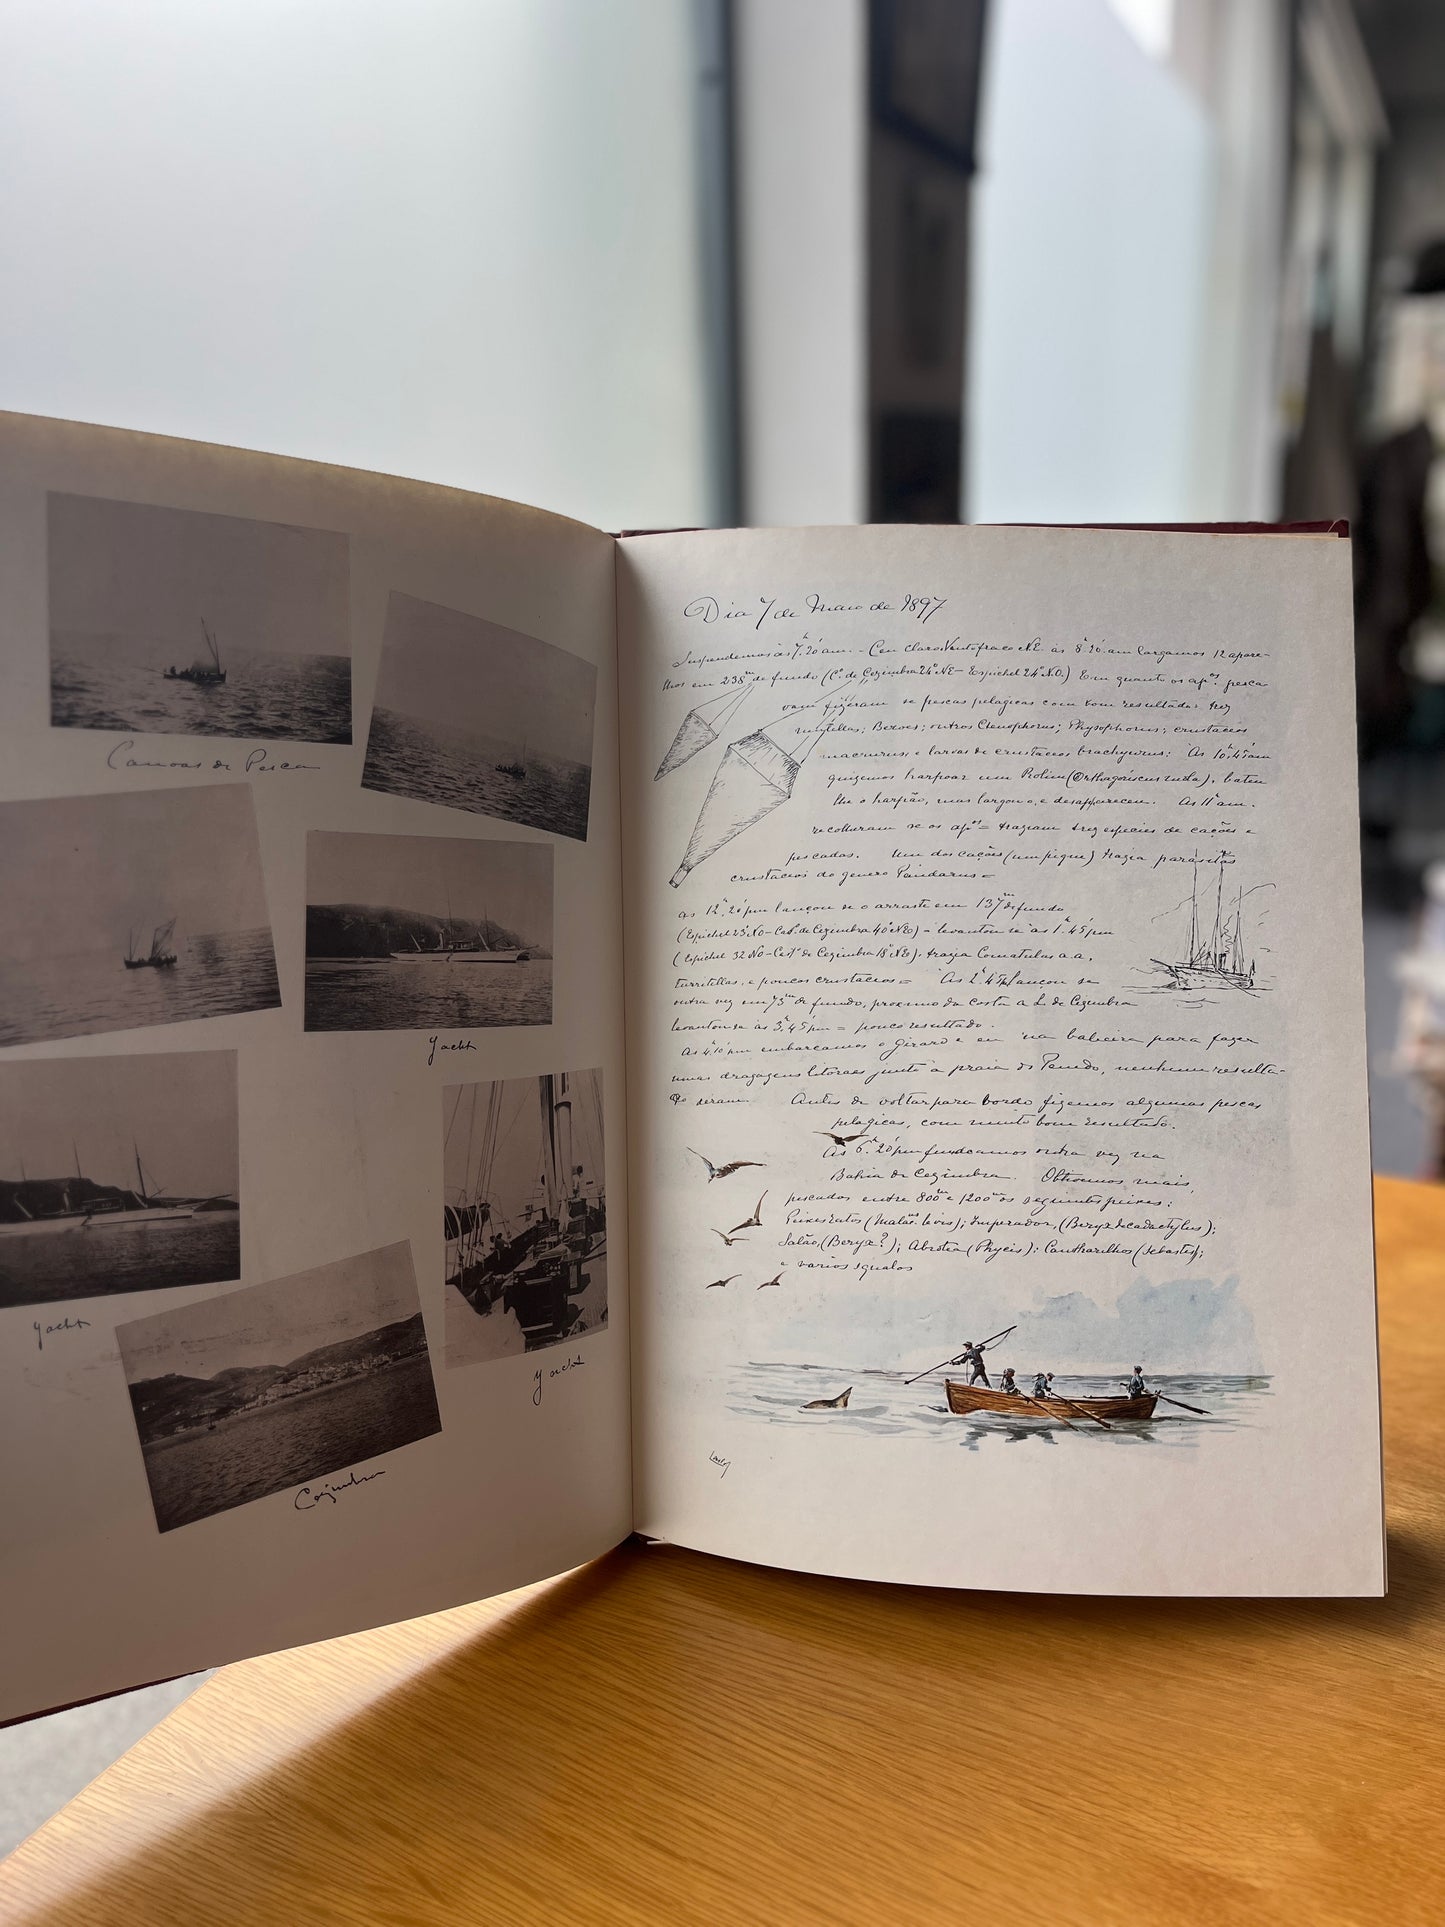 Canoas de Pesca
Yacht
Yacht
Yacht
Cezimbra
Dia 7 de Maio de 1897
Suspendemos ás 7.h 20 am. - Ceu claro Vento fraco NE. ás 8.h 20 am largamos 12 apare-
lhos em 238m de fundo (C.º de Cezimbra 24º NE - Espichel 24º N.O.) Em quanto os ap.os pesca
vam fizeram se pescas pelagicas com bom resultado: trez
Beroes; outros Ctenophoros; Physophorus; crustacios
macruros e larvas de crustacios brachyuros; Ás 10.h 45 am
quizemos harpoar um Rolim (Orthagoriscus mola), bateu
lhe o harpão, mas largou o, e desappareceu. Ás 11h am.
recolheram se os ap.os = tragiam trez especies de cações e
pescadas. Um dos cações (um pique) trazia parasitas
crustacios do genero Pandarus =
ás 12.h 20 pm lançou se o arraste em 137m de fundo
(Espichel 23º NO - Cab.º de Cezimbra 40º NE) = levantou se ás 1.h 45 pm
(Espichel 32 NO - Cast.º de Cezimbra 18º NE), trazia Comatulas a.a.
turritellas, e poucos crustacios = Ás 2.h 45 pm lançou se
outra vez em 75m de fundo, proximo da costa a L. de Cezimbra
levantou se ás 3.h 45 pm = pouco resultado.
Ás 4.h 10 pm embarcamos o Girard e eu na baleeira para fazer
umas dragagens litoraes junto á praia do Penedo, nenhum resulta-
do deram. Antes de voltar para bordo fizemos algumas pescas
pelagicas, com muito bom resultado.
Ás 6.h 20 pm fundeamos outra vez na
Bahia de Cezimbra. Obtivemos mais,
pescados entre 800m e 1200m os seguintes peixes:
Peixes ratos (Malac.us levis); Imperador, (Beryx decadactylus);
Salão, (Beryx?); Abrotia (Phycis); Cantharilhos (Sebastes);
e varios Squalos